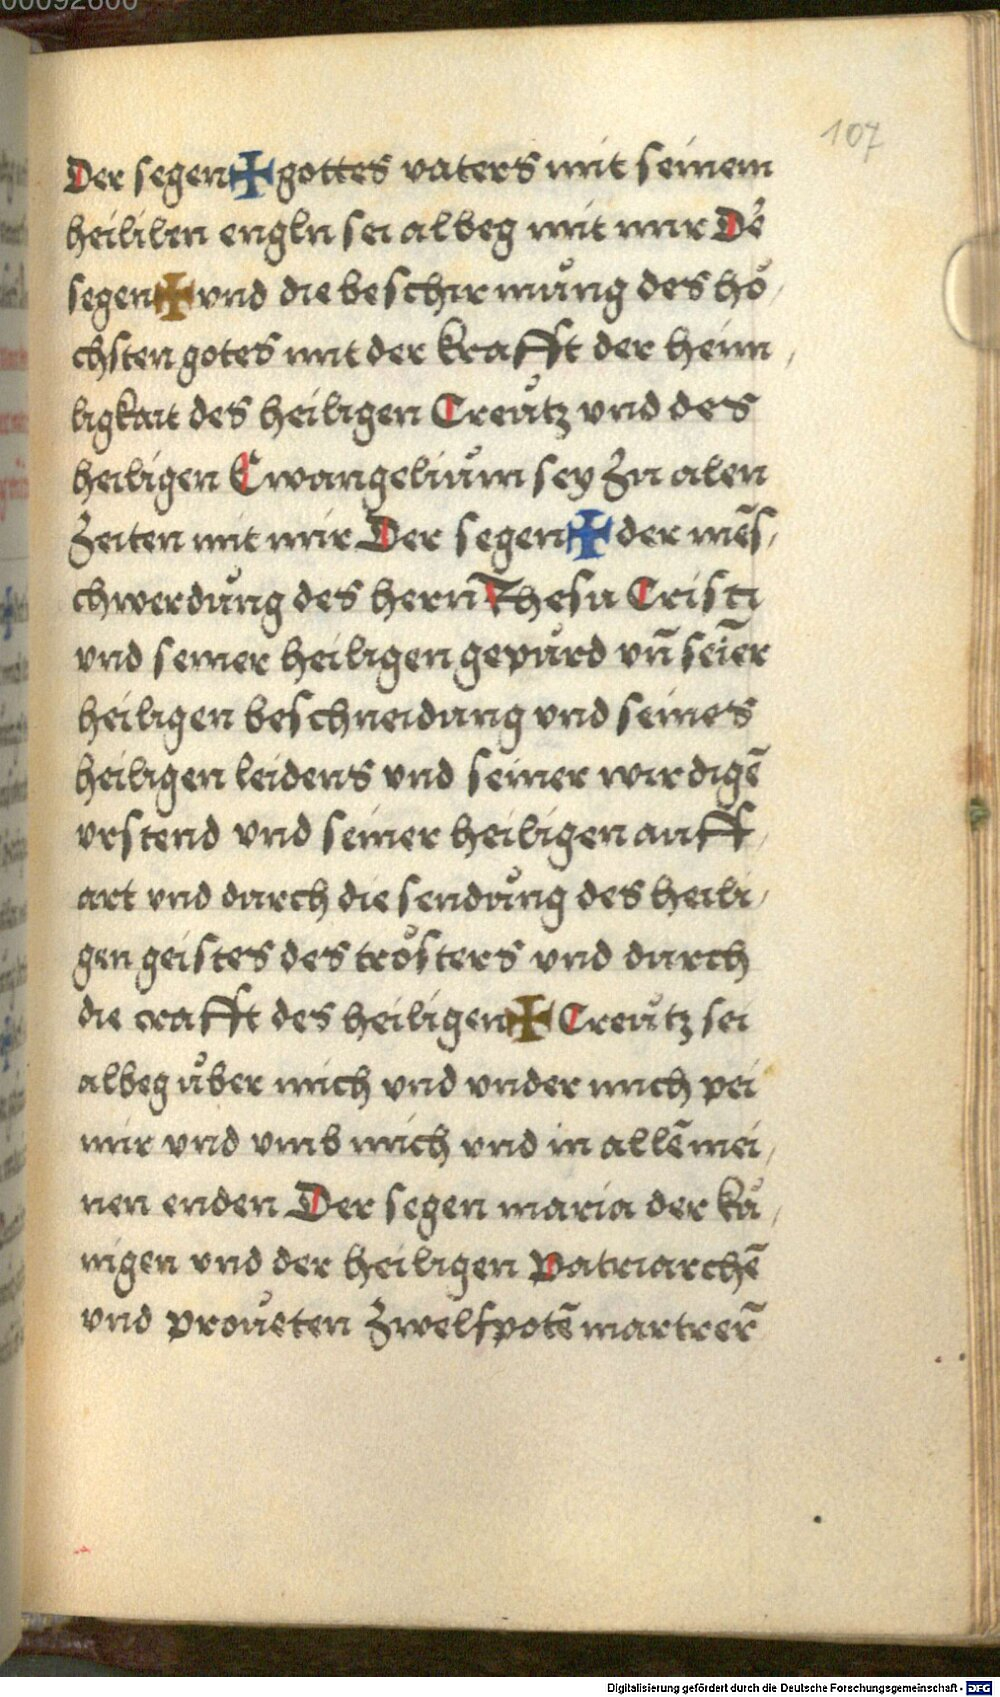 00092600
107
Der segen ✠ gottes vaters mit seinem
heililen engln sei albeg mit mir Dē
segen ✠ vnd die beschirmůng des hö,
chsten gotes mit der krafft der heim,
ligkait des heiligen Creůtz vnd des
heiligen Ewangeliům sey Zu alen
Zeiten mit mir Der segen ✠ der mēs,
chwerdůng des hern Jhesu Cristi
vnd seiner heiligen gepůrd vn̄ seīer
heiligen beschneidung vnd seines
heiligen leidens vnd seiner wirdigē
vrstend vnd seiner heiligen auff,
art vnd durch die sendůng des heili,
gen geistes des trösters vnd durch
die crafft des heiligen ✠ Creůtz sei
albeg ůber mich vnd vnder mich pei
mir vnd vmb mich vnd in allē mei,
nen enden Der segen maria der kü,
nigen vnd der heiligen Patriarchē
vnd proueten Zwelfpotē martrer̄
Digitalisierung gefördert durch die Deutsche Forschungsgemeinschaft - DFG